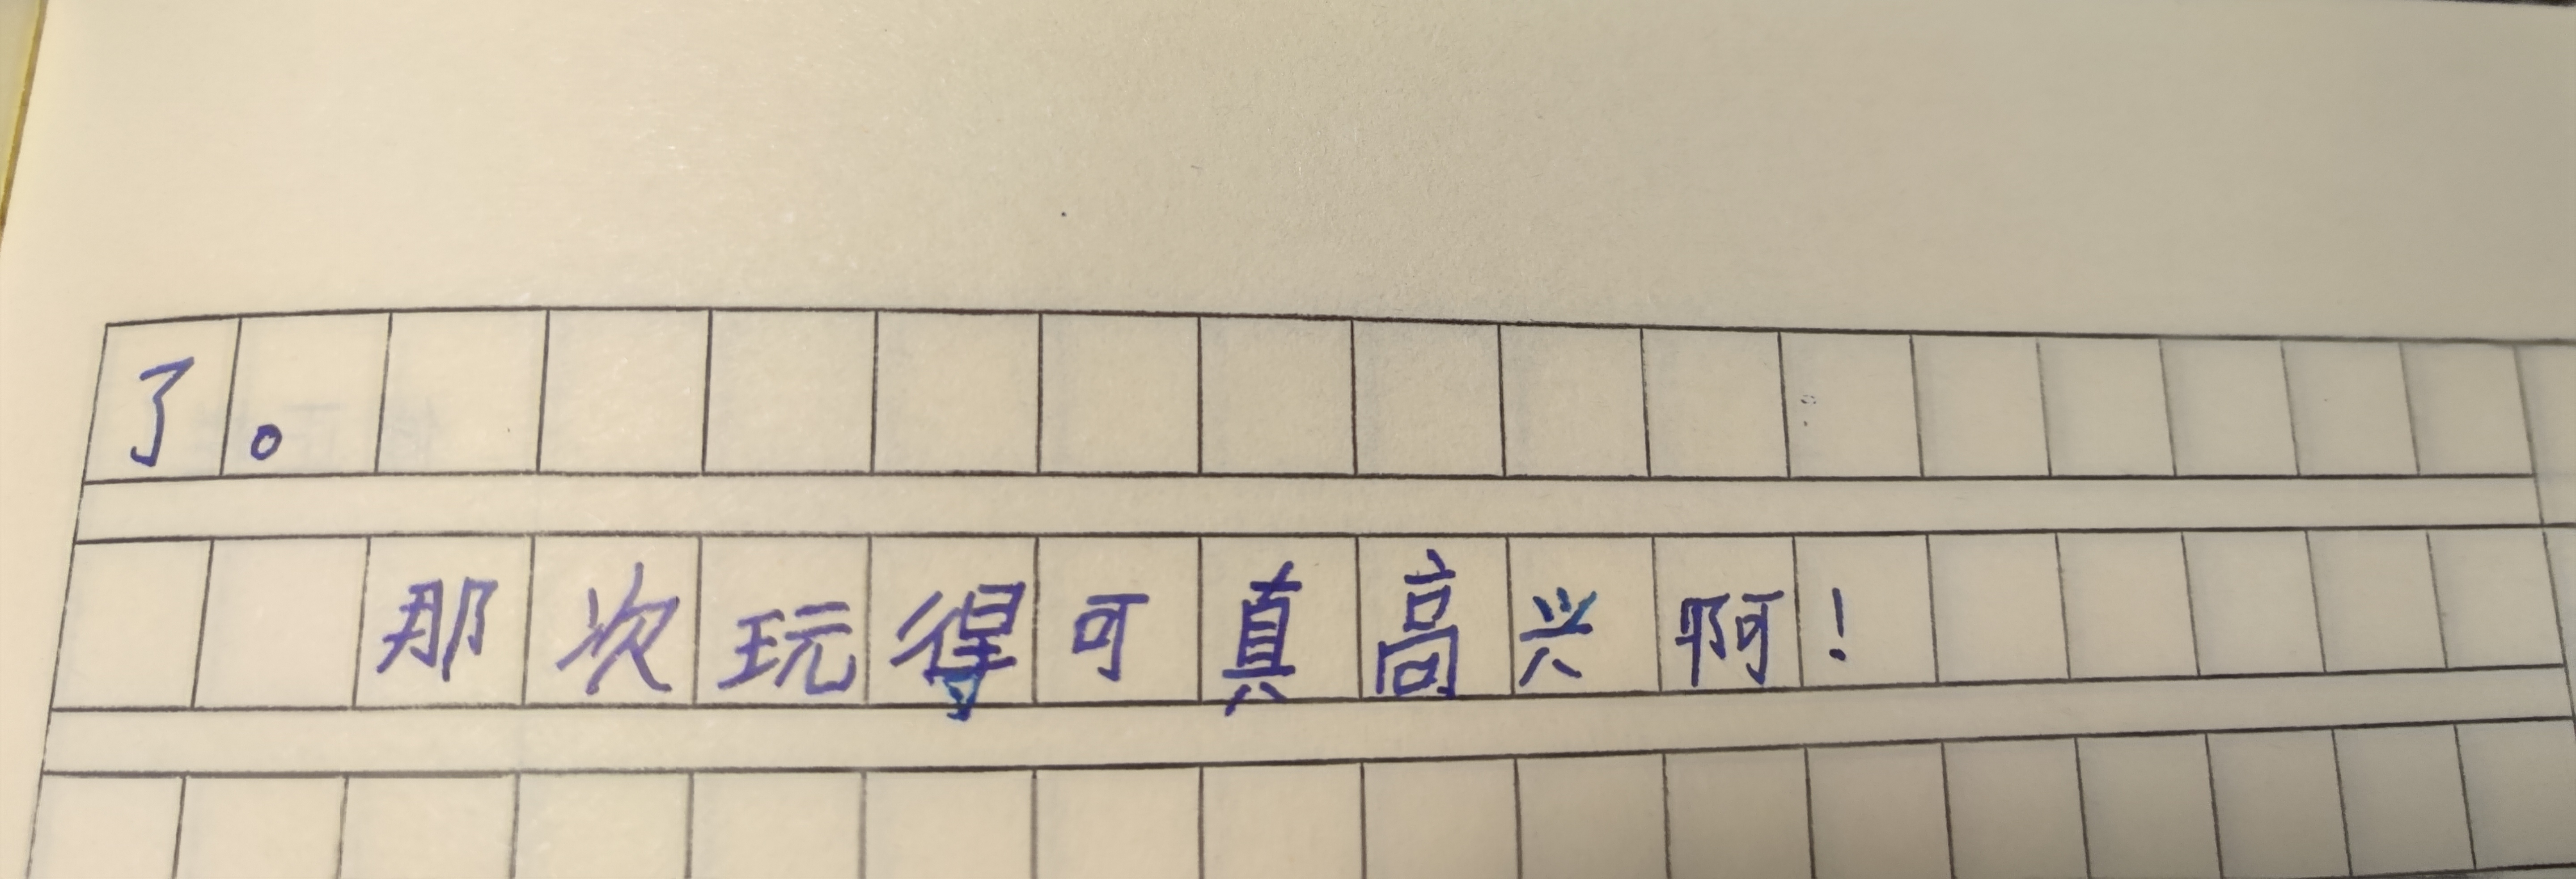 了。
那次玩得可真高兴啊!